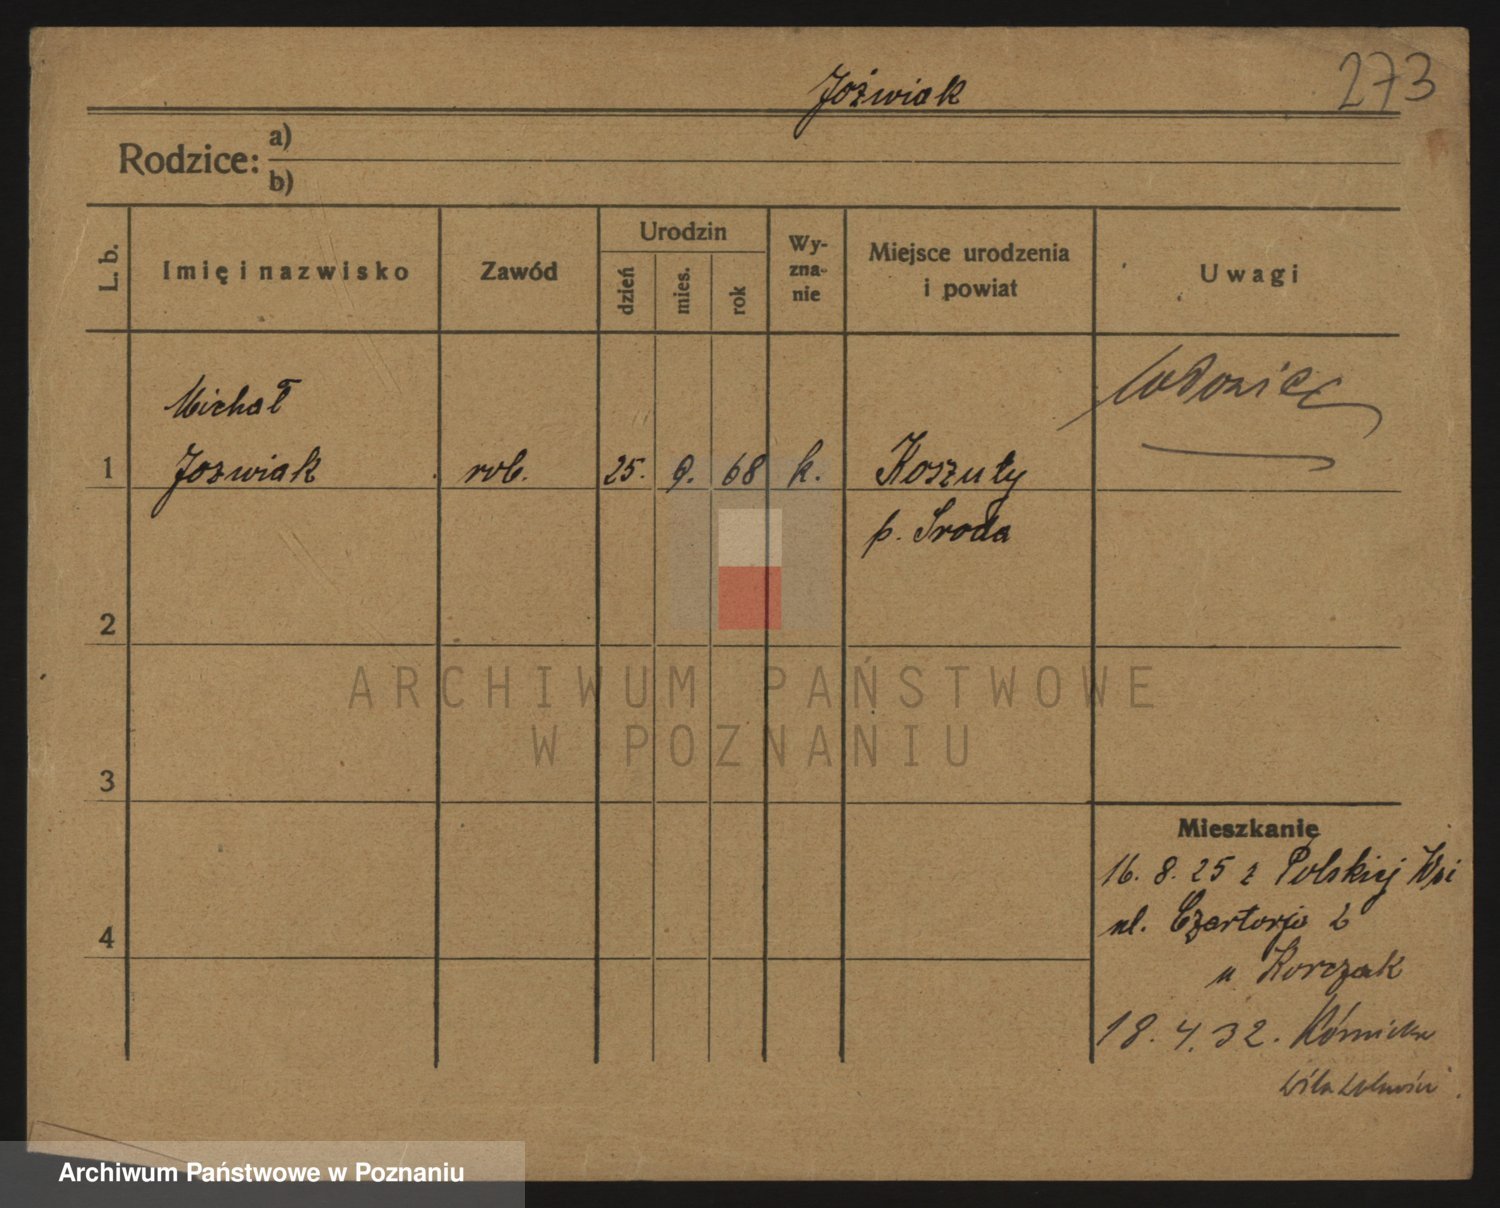 Jóźwiak
273
Rodzice:
a)
b)
L. b.
Imię i nazwisko
Zawód
Urodzin
dzień
mies.
rok
Wy-
zna-
nie
Miejsce urodzenia
i powiat
Uwagi
Michał
1 Jozwiak rob. 25. 9. 68 k. Koszuty
p. Sroda
2
3
4
Mieszkanie
16. 8. 25 z Polskiej Wsi
ul. Czartorja 2
u Korczak
18. 4. 32. Kórnicka
ARCHIWUM PAŃSTWOWE
W POZNANIU
Archiwum Państwowe w Poznaniu